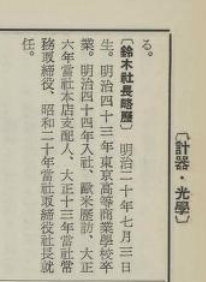 〔計器・光學〕
る。
〔鈴木社長略歷〕　明治二十年七月三日
生。明治四十三年東京高等商業學校卒
業。明治四十四年入社、歐米歷訪、大正
六年當社本店支配人、大正十三年當社常
務取締役、昭和二十年當社取締役社長就
任。